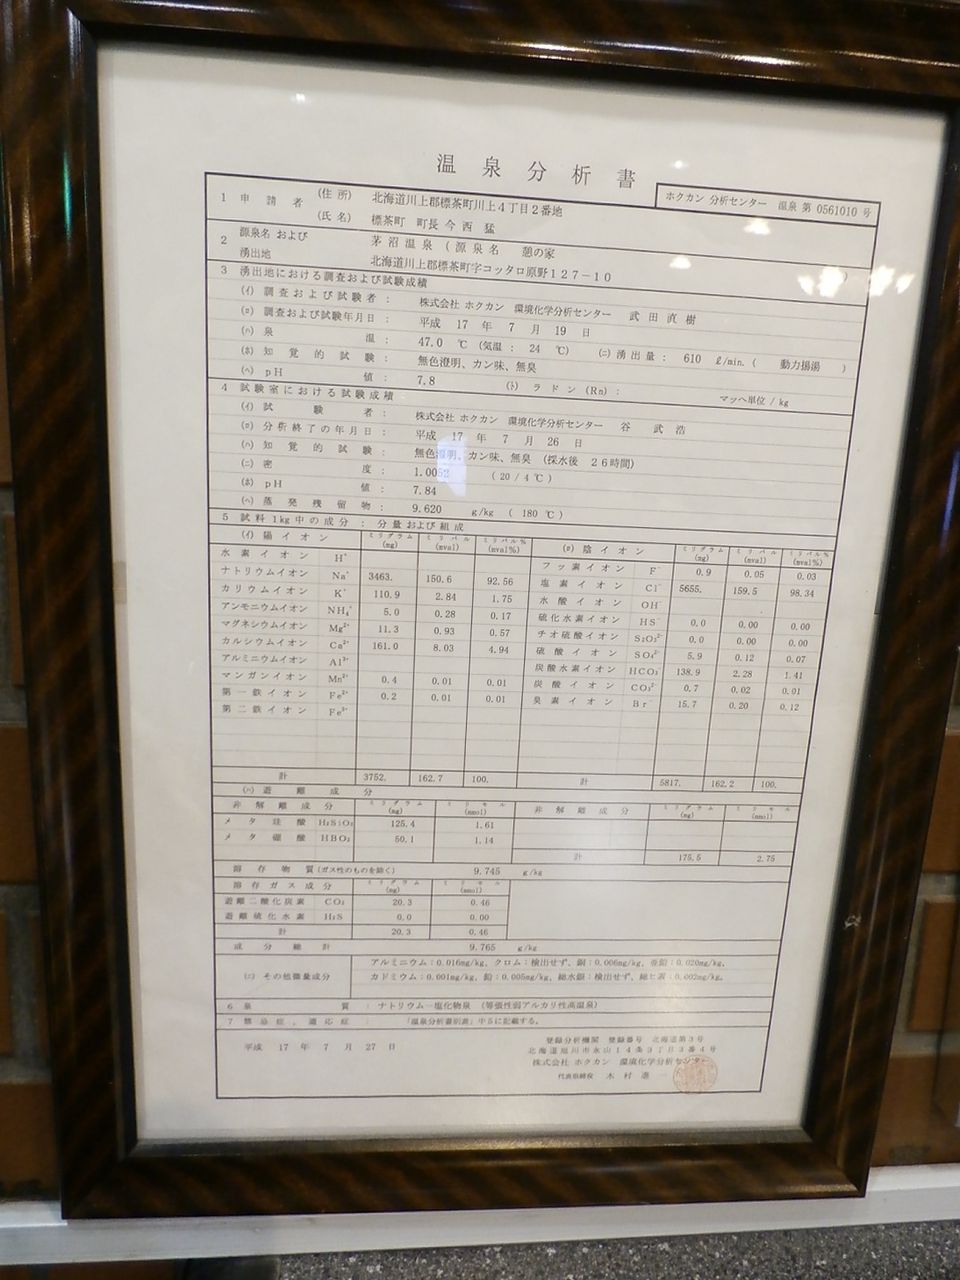 温泉分析書
ホクカン 分析センター 温泉 第 0561010 号
1 申請者 (住所) 北海道川上郡標茶町川上4丁目2番地
(氏名) 標茶町 町長 今西 猛
2 源泉名 および 茅沼温泉 (源泉名 憩の家 )
湧出地 北海道川上郡標茶町字コッタロ原野127-10
3 湧出地における調査および試験成績
(イ) 調査および試験者: 株式会社 ホクカン 環境化学分析センター 武田直樹
(ロ) 調査および試験年月日: 平成 17 年 7 月 19 日
(ハ) 泉温: 47.0 ℃ (気温: 24 ℃) (ニ) 湧出量: 610 ℓ/min. ( 動力揚湯 )
(ホ) 知覚的試験: 無色澄明、カン味、無臭
(ヘ) pH値: 7.8 (ト) ラドン(Rn): マッヘ単位/kg
4 試験室における試験成績
(イ) 試験者: 株式会社 ホクカン 環境化学分析センター 谷 武浩
(ロ) 分析終了の年月日: 平成 17 年 7 月 26 日
(ハ) 知覚的試験: 無色澄明、カン味、無臭 (採水後 26時間)
(ニ) 密度: 1.0052 (20/4℃)
(ホ) pH値: 7.84
(ヘ) 蒸発残留物: 9.620 g/kg ( 180 ℃)
5 試料1kg中の成分: 分量および組成
(イ) 陽イオン ミリグラム(mg) ミリバル(mval) ミリバル%(mval%) (ロ) 陰イオン ミリグラム(mg) ミリバル(mval) ミリバル%(mval%)
水素イオン H⁺ フッ素イオン F⁻ 0.9 0.05 0.03
ナトリウムイオン Na⁺ 3463. 150.6 92.56 塩素イオン Cl⁻ 5655. 159.5 98.34
カリウムイオン K⁺ 110.9 2.84 1.75 水酸イオン OH⁻
アンモニウムイオン NH₄⁺ 5.0 0.28 0.17 硫化水素イオン HS⁻ 0.0 0.00 0.00
マグネシウムイオン Mg²⁺ 11.3 0.93 0.57 チオ硫酸イオン S₂O₃²⁻ 0.0 0.00 0.00
カルシウムイオン Ca²⁺ 161.0 8.03 4.94 硫酸イオン SO₄²⁻ 5.9 0.12 0.07
アルミニウムイオン Al³⁺ 炭酸水素イオン HCO₃⁻ 138.9 2.28 1.41
マンガンイオン Mn²⁺ 0.4 0.01 0.01 炭酸イオン CO₃²⁻ 0.7 0.02 0.01
第一鉄イオン Fe²⁺ 0.2 0.01 0.01 臭素イオン Br⁻ 15.7 0.20 0.12
第二鉄イオン Fe³⁺
計 3752. 162.7 100. 計 5817. 162.2 100.
(ハ) 遊離成分
非解離成分 ミリグラム(mg) ミリモル(mmol) 非解離成分 ミリグラム(mg) ミリモル(mmol)
メタ珪酸 H₂SiO₃ 125.4 1.61
メタ硼酸 HBO₂ 50.1 1.14
計 175.5 2.75
溶存物質(ガス性のものを除く) 9.745 g/kg
溶存ガス成分 ミリグラム(mg) ミリモル(mmol)
遊離二酸化炭素 CO₂ 20.3 0.46
遊離硫化水素 H₂S 0.0 0.00
計 20.3 0.46
成分総計 9.765 g/kg
(ニ) その他微量成分 アルミニウム:0.016mg/kg、クロム:検出せず、銅:0.006mg/kg、亜鉛:0.020mg/kg、
カドミウム:0.001mg/kg、鉛:0.005mg/kg、総水銀:検出せず、総ヒ素:0.002mg/kg。
6 泉質: ナトリウム-塩化物泉 (等張性弱アルカリ性高温泉)
7 禁忌症、適応症: 「温泉分析書別表」中5に記載する。
平成 17 年 7 月 27 日
登録分析機関 登録番号 北海道第3号
北海道旭川市永山14条3丁目3番4号
株式会社 ホクカン 環境化学分析センター
代表取締役 木村 進一